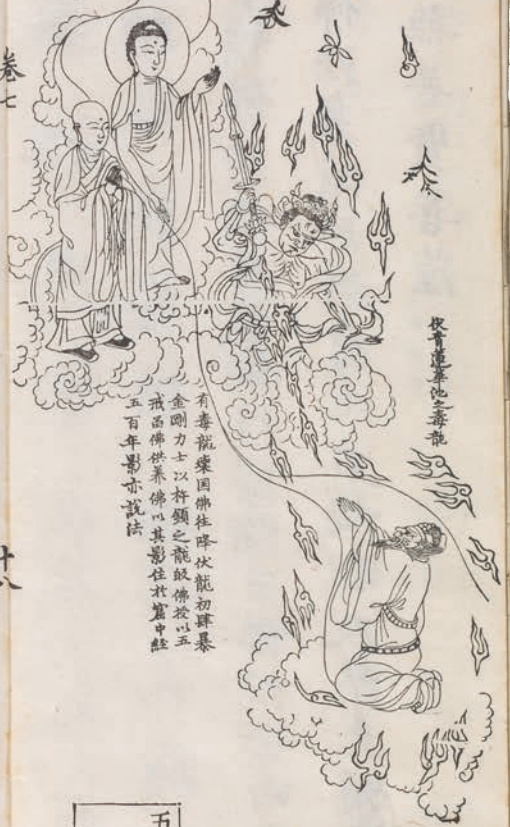 卷七
十八
伏青蓮華池之毒龍
有毒龍壞国佛往降伏龍初肆暴
金剛力士以杵碩之龍皈佛授以五
戒畱佛供养佛以其影住於窟中経
五百年影亦說法
五